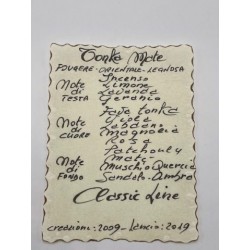 Tonka Mate
FOUGERE - ORIENTALE - LEGNOSA
Incenso
Note Limone
di Lavanda
TESTA Geranio
Fava tonka
Note Viola
di Labdano
CUORE Magnolia
Rosa
Patchouly
Note Matè
di Muschio Quercia
FONDO Sandalo - Ambra
Classic Line
creazione: 2009 - lancio: 2019